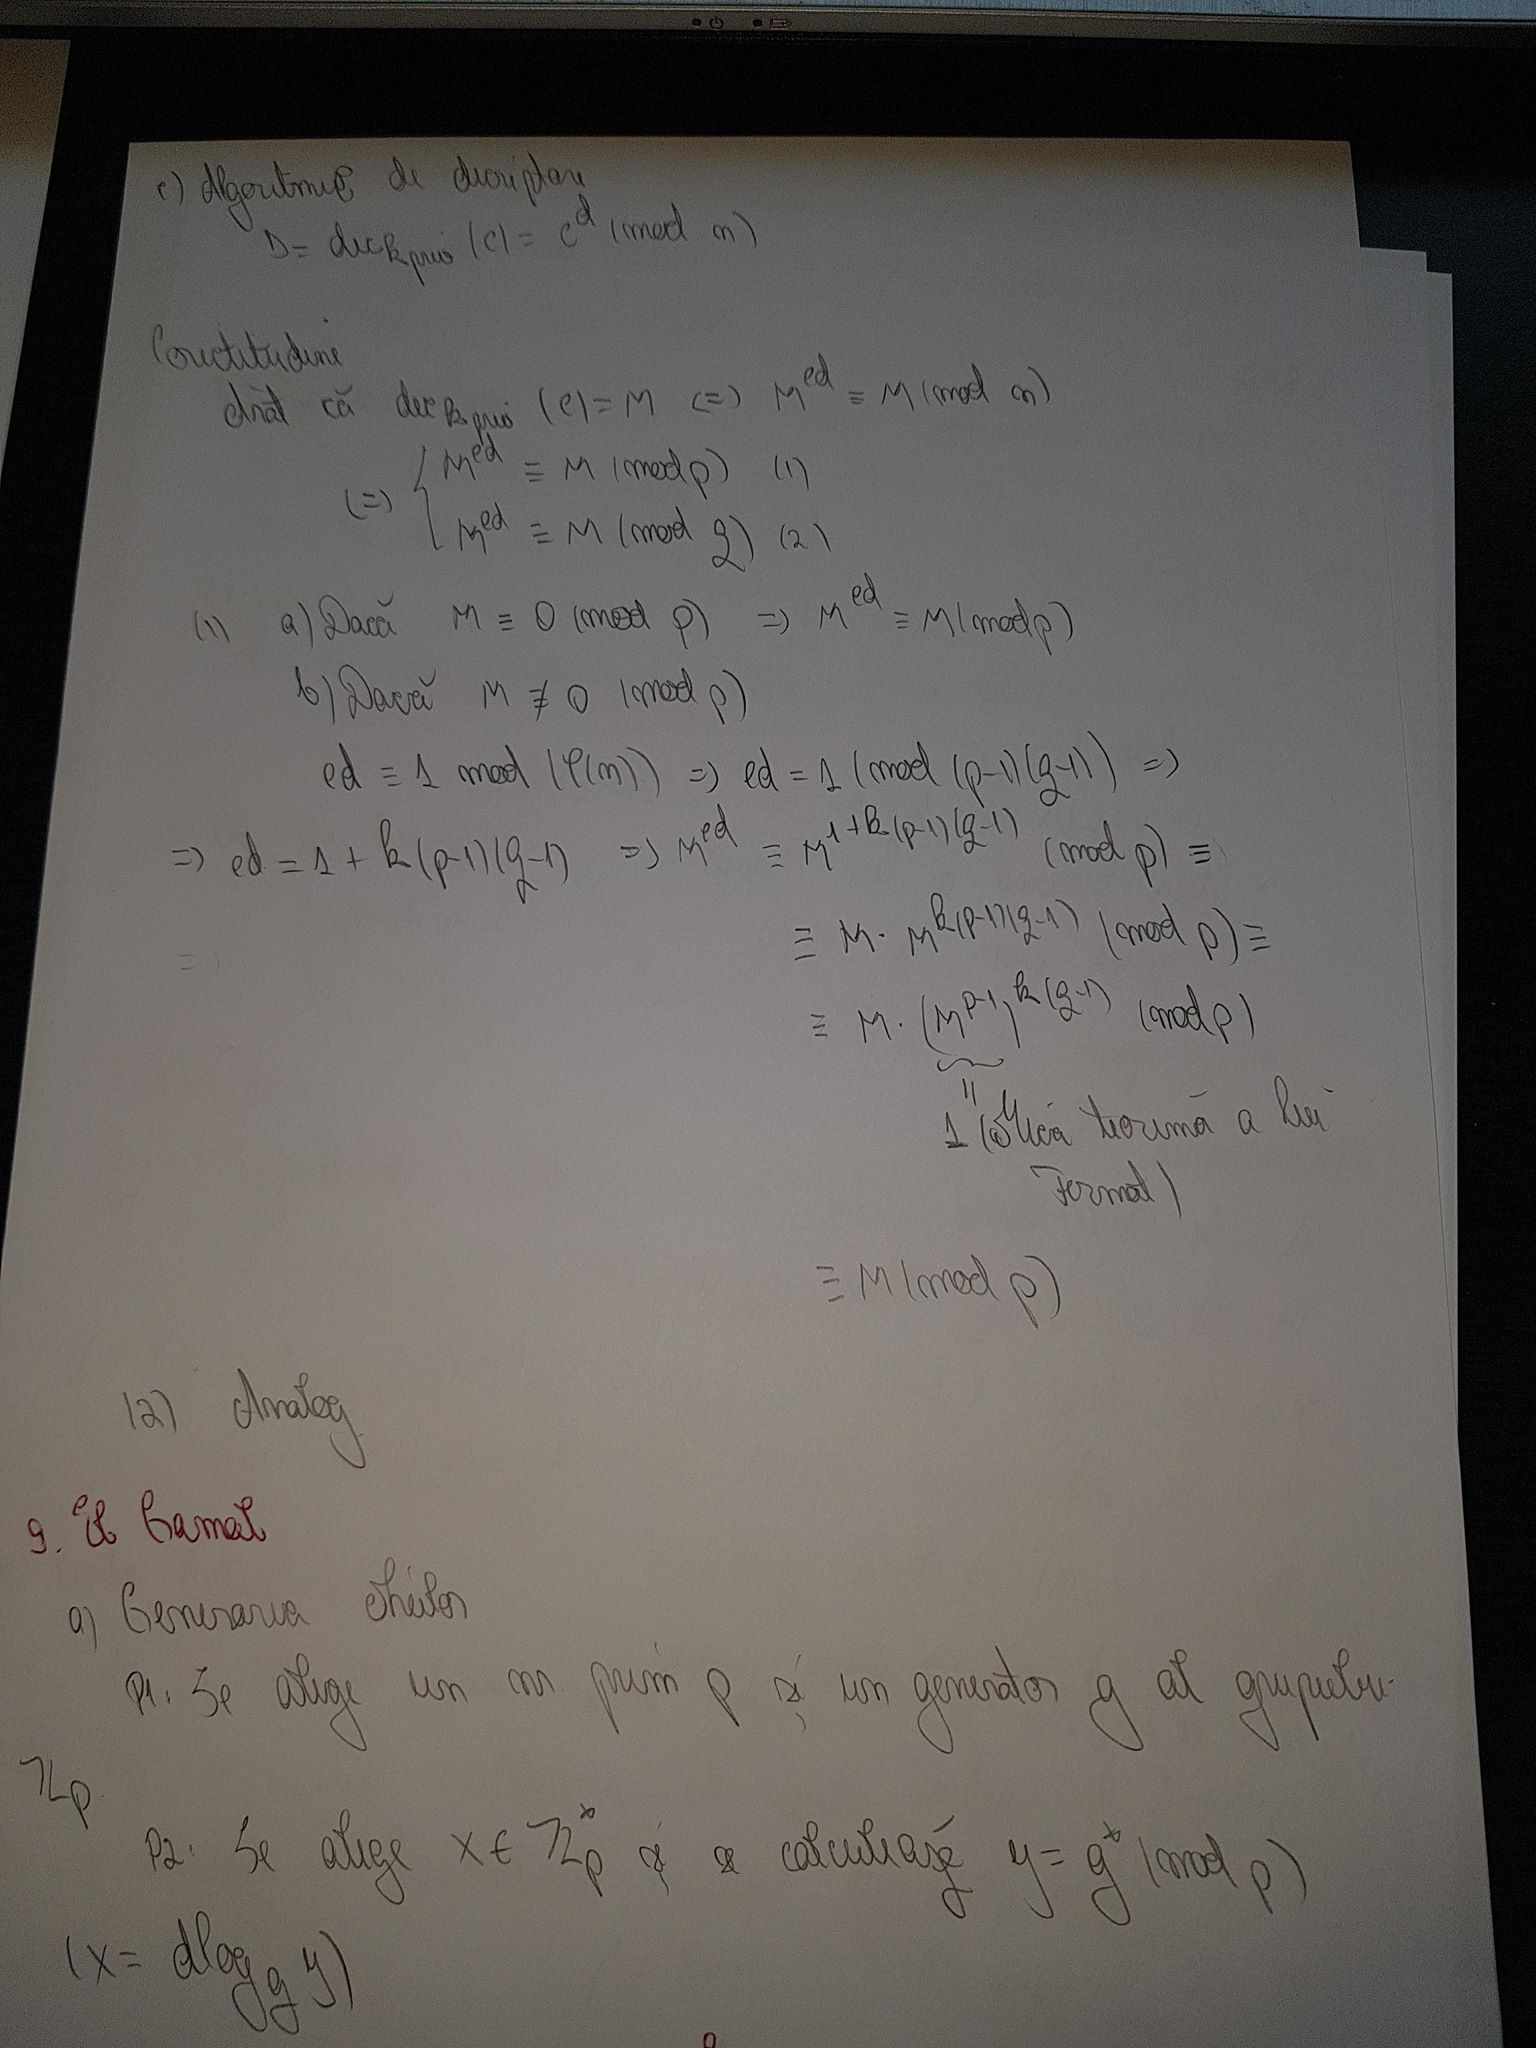 c) Algoritmul de decriptare
D = dec k priv (c) = c^d (mod n)
Corectitudine
Arăt că dec k priv (c) = M (=) M^ed ≡ M (mod n)
(=) { M^ed ≡ M (mod p) (1)
M^ed ≡ M (mod q) (2)
(1) a) Dacă M ≡ 0 (mod p) => M^ed ≡ M (mod p)
b) Dacă M ≢ 0 (mod p)
ed ≡ 1 mod (φ(n)) => ed = 1 (mod (p-1)(q-1)) =>
=> ed = 1 + k (p-1)(q-1) => M^ed ≡ M^1+k(p-1)(q-1) (mod p) ≡
≡ M · M^k(p-1)(q-1) (mod p) ≡
≡ M · (M^p-1)^k(q-1) (mod p)
1 (Mica teoremă a lui
Fermat)
≡ M (mod p)
(2) Analog
9. El Gamal
a) Generarea cheilor
P1: Se alege un nr. prim p și un generator g al grupului
ℤp
P2: Se alege x ∈ ℤp* și se calculează y = g^x (mod p)
(x = dlog g y)